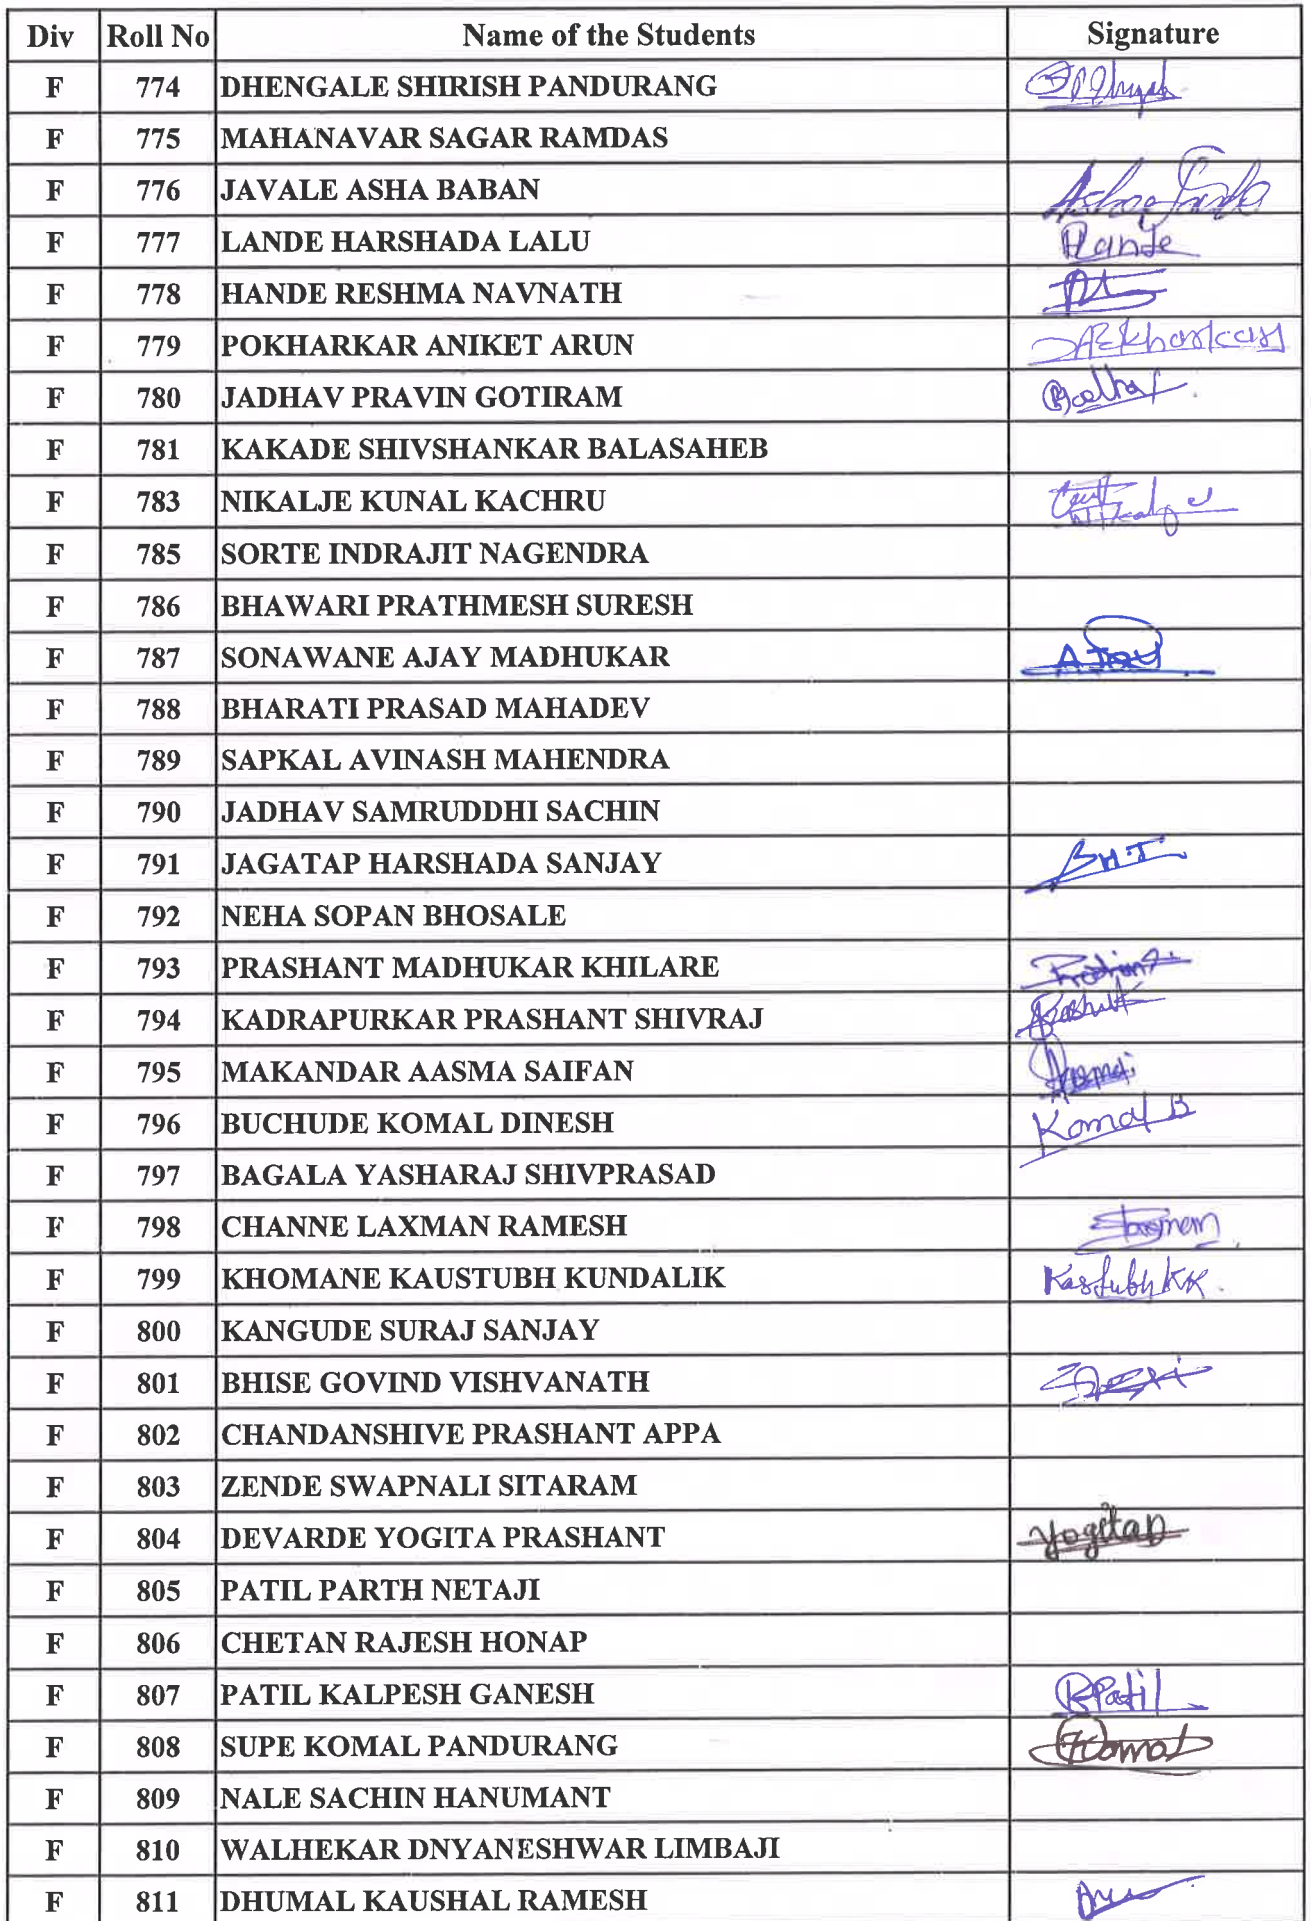 Div Roll No Name of the Students Signature
F 774 DHENGALE SHIRISH PANDURANG
F 775 MAHANAVAR SAGAR RAMDAS
F 776 JAVALE ASHA BABAN
F 777 LANDE HARSHADA LALU
F 778 HANDE RESHMA NAVNATH
F 779 POKHARKAR ANIKET ARUN
F 780 JADHAV PRAVIN GOTIRAM
F 781 KAKADE SHIVSHANKAR BALASAHEB
F 783 NIKALJE KUNAL KACHRU
F 785 SORTE INDRAJIT NAGENDRA
F 786 BHAWARI PRATHMESH SURESH
F 787 SONAWANE AJAY MADHUKAR
F 788 BHARATI PRASAD MAHADEV
F 789 SAPKAL AVINASH MAHENDRA
F 790 JADHAV SAMRUDDHI SACHIN
F 791 JAGATAP HARSHADA SANJAY
F 792 NEHA SOPAN BHOSALE
F 793 PRASHANT MADHUKAR KHILARE
F 794 KADRAPURKAR PRASHANT SHIVRAJ
F 795 MAKANDAR AASMA SAIFAN
F 796 BUCHUDE KOMAL DINESH Komal B
F 797 BAGALA YASHARAJ SHIVPRASAD
F 798 CHANNE LAXMAN RAMESH
F 799 KHOMANE KAUSTUBH KUNDALIK Kastubh KK.
F 800 KANGUDE SURAJ SANJAY
F 801 BHISE GOVIND VISHVANATH
F 802 CHANDANSHIVE PRASHANT APPA
F 803 ZENDE SWAPNALI SITARAM
F 804 DEVARDE YOGITA PRASHANT
F 805 PATIL PARTH NETAJI
F 806 CHETAN RAJESH HONAP
F 807 PATIL KALPESH GANESH
F 808 SUPE KOMAL PANDURANG Komal
F 809 NALE SACHIN HANUMANT
F 810 WALHEKAR DNYANESHWAR LIMBAJI
F 811 DHUMAL KAUSHAL RAMESH